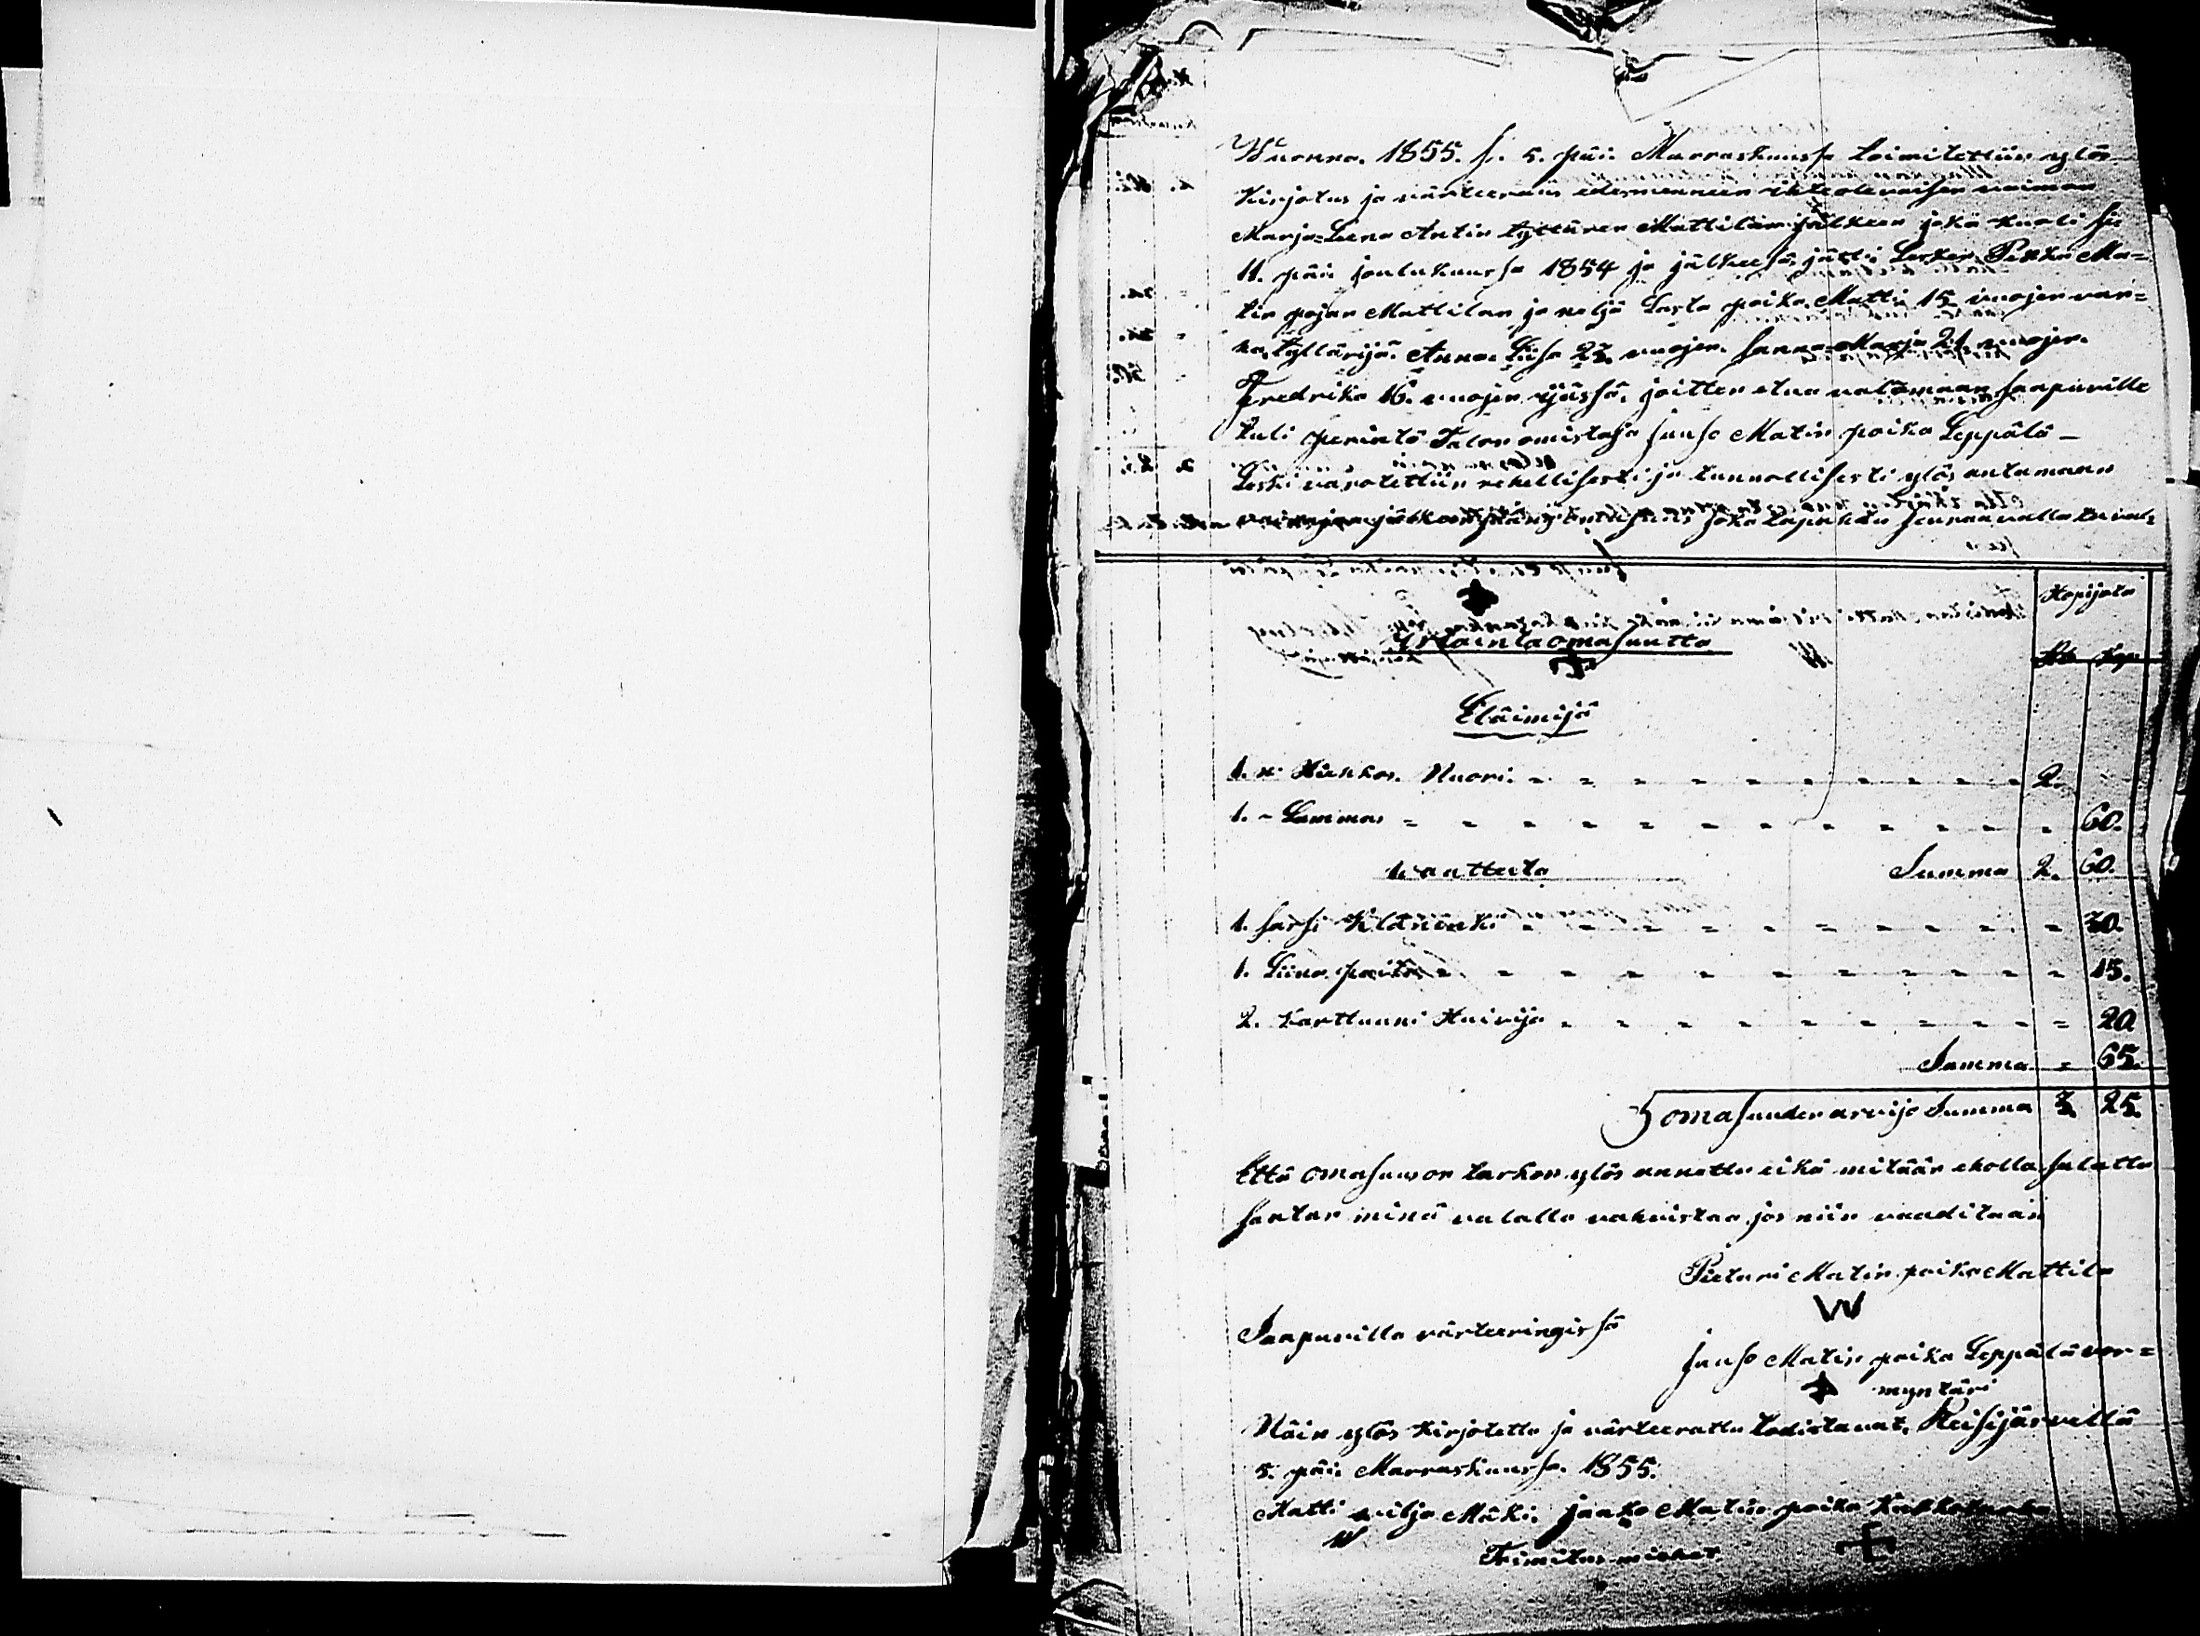 Wuonna. 1855. s. 5. päi. Marraskuussa toimitettiin ylös
kirjotus ja värteeraus edesmenneen ihteolevaisen vaimon
Marja-Leena Antin tyttären Mattilan jälkeen joka kuoli se
11. päi. joulukuussa 1854 ja jälkeesä jätti Lesken Pekka Ma=
tin pojan Mattilan ja neljä Lasta poika Matti 15 vuojen van=
ha, Tyttärijä. Anna Liisa 23. vuojen. Sanna-Marja 21. vuojen.
Fredrika 16. vuojen ijässä, joitten etua valvomaan saapuville
tuli perintö Talon omistaja Juuso Matin poika Leppälä –
Leski varotettiin rehellisesti ja tunnollisesti ylös antamaan
joka tapahtu seuraavalla taval=
Hopijata
Irtainta omasuutta
Rub. Kop.
Eläimijä
1. Hiehko. Nuori. 2.
1. - Lammas 60.
waatteita Summa 2. 60.
1. sarsi Klänönki 30.
1. Liina paita 15.
2. Karttuuni Huivija 20
Summa = 65.
omasuuden arvijo Summa 3. 25.
Että omasuus on tarkon ylös annettu eikä mitään eholla salattu
saatan minä valalla vahvistaa jos niin vaaditaan
Pieturi Matin poika Mattila
W
Saapuvilla värteeringissä
Juuso Matin poika Leppälä vor=
myntäri
Näin ylös kirjotettu ja värteerattu todistavat. Reisijärvellä
5. päi. Marraskuussa. 1855.
Matti vilja Mäki. Jaako Matin poika
Toimitus miehet